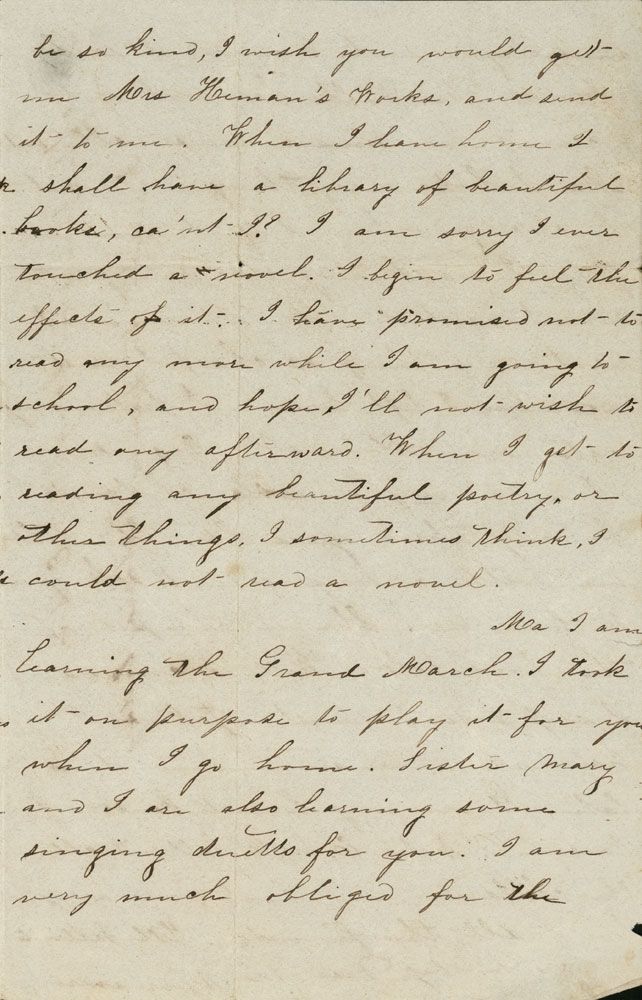 be so kind, I wish you would get
me Mrs Heman's Works, and send
it to me. When I leave home I
shall have a library of beautiful
books, ca'nt I? I am sorry I ever
touched a novel. I begin to feel the
effects of it. I have promised not to
read any more while I am going to
school, and hope I'll not wish to
read any afterward. When I get to
reading any beautiful poetry, or
other things, I sometimes think, I
could not read a novel.
Ma I am
learning the Grand March. I took
it on purpose to play it for you
when I go home. Sister Mary
and I are also learning some
singing duetts for you. I am
very much obliged for the